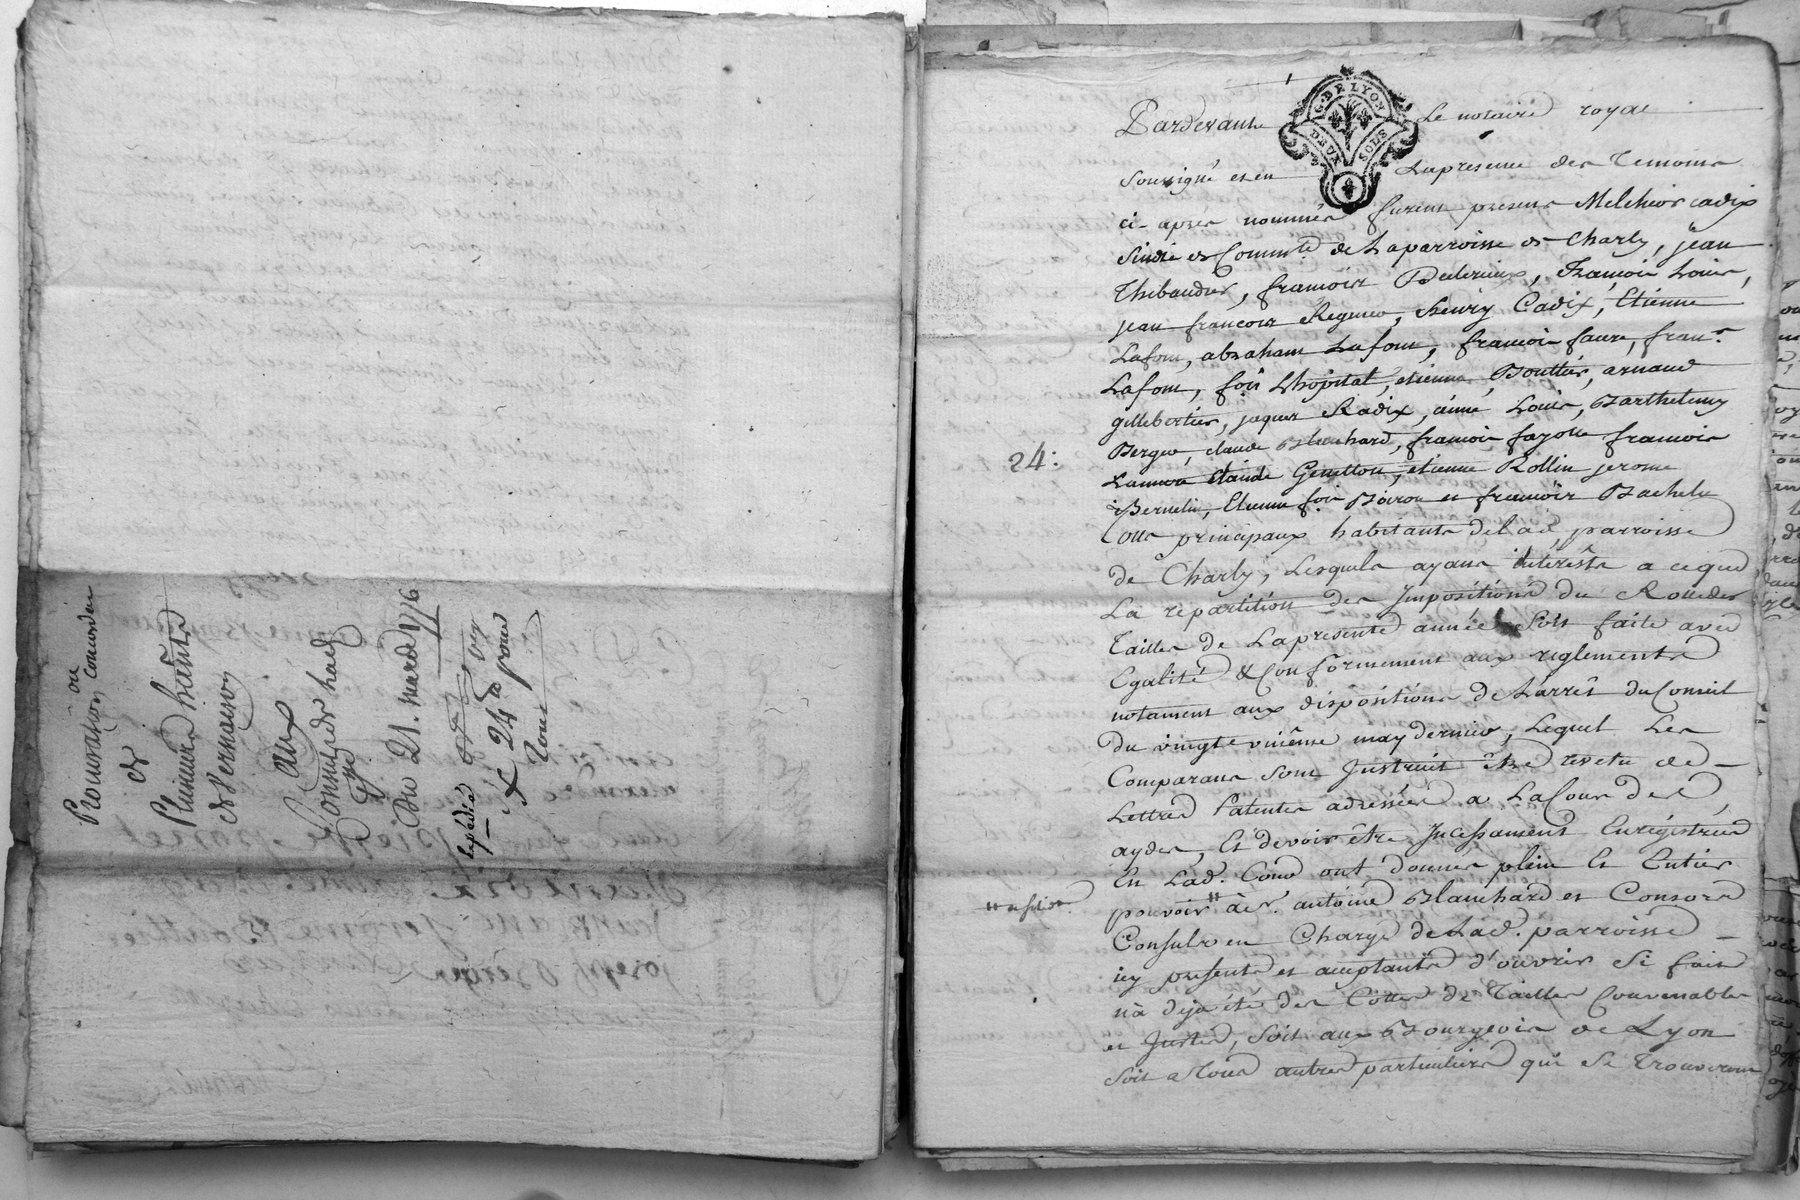 Procuration ou
de
Plusieurs habitants
de Vernaison
aux
Consuls dud
Lieu
Du 21. mars 1776
Expédié
24
Pardevant Le notaire royal
G. DE LYON
DEUX SOLS
soussigné et en La presence des Temoins
ci-apres nommés furent presents Melchior cadix
Sindic et Comm.té de La parroisse de Charly, jean
Thibaudier, francois françois Louis,
jean francois Regnier, henry Cadix, Etienne
Lafont, abraham Lafont, francois faure, fran.s
Lafont, fois Lhopital, etienne Bouttier, arnaud
gillebertier, jaques Radix, aimé Louis, Barthelemy
Berger, claude Blanchard, francois fayolle francois
claude Genetton, etienne Rollin jerome
Bernelin, Etienne et francois Bachelu
Tous principaux habitants de Lad. parroisse
24:
de Charly, Lesquels ayant intérêts a ce que
La repartition des Impositions du Rolle des
Tailles de La presente année soit faite avec
Egalité & Conformement aux reglements
notament aux dispositions de L'arrêt du Conseil
du vingt may dernier, Lequel Les
Comparants sont Instruit être revetu de
Lettres Patentes adressées a La Cour des
aydes, Et devoir être Incessament Enregistrées
En Lad. Cour ont donnés plein Et Entier
pouvoir à S.r antoine Blanchard et Consors
Consuls en Charge de Lad. parroisse
icy presents et acceptants d'ouvrir si fait
n'a deja été des Cottes de Tailles Convenables
et Justes, soit aux Bourgeois de Lyon
soit a Tous autres particuliers qui se trouveront